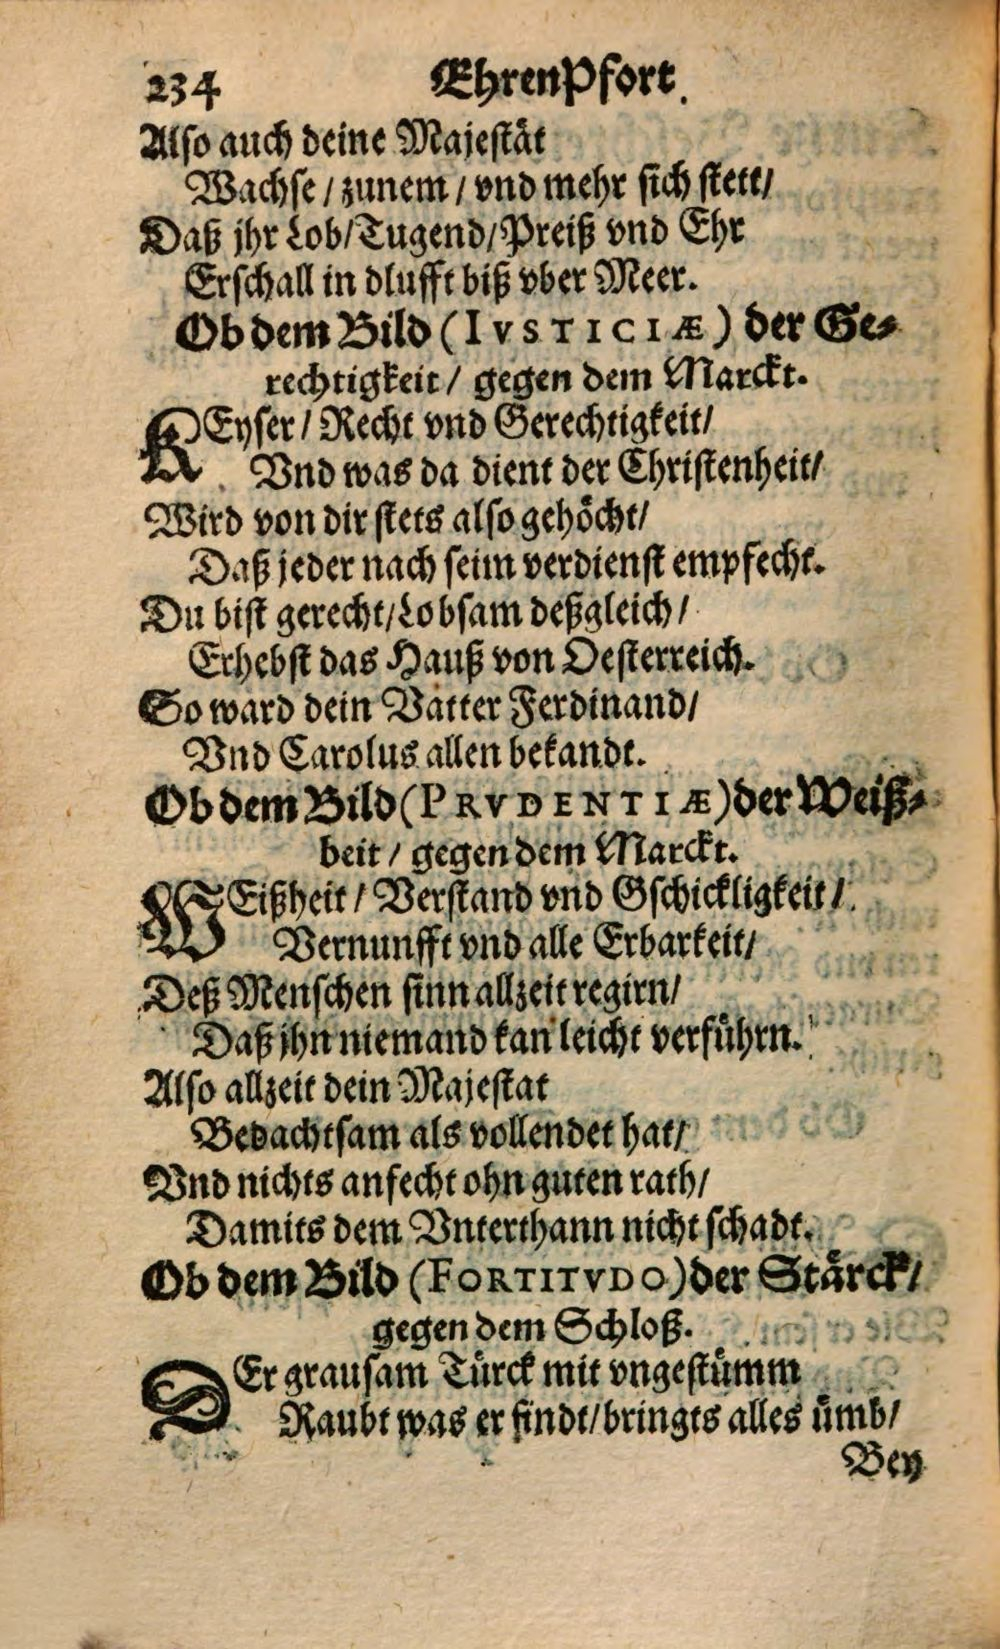 234 EhrenPfort.
Also auch deine Majestät
Wachse / zunem / vnd mehr sich stett /
Daß jhr Lob / Tugend / Preiß vnd Ehr
Erschall in dlufft biß vber Meer.
Ob dem Bild (IVSTICIÆ) der Ge-
rechtigkeit / gegen dem Marckt.
KEyser / Recht vnd Gerechtigkeit /
Vnd was da dient der Christenheit /
Wird von dir stets also gehöcht /
Daß jeder nach seim verdienst empfecht.
Du bist gerecht / Lobsam deßgleich /
Erhebst das Hauß von Oesterreich.
So ward dein Vatter Ferdinand /
Vnd Carolus allen bekandt.
Ob dem Bild (PRVDENTIÆ) der Weiß-
beit / gegen dem Marckt.
WEißheit / Verstand vnd Gschickligkeit /
Vernunfft vnd alle Erbarkeit /
Deß Menschen sinn allzeit regirn /
Daß jhn niemand kan leicht verführn.
Also allzeit dein Majestat
Bedachtsam als vollendet hat /
Vnd nichts anfecht ohn guten rath /
Damits dem Vnterthann nicht schadt.
Ob dem Bild (FORTITVDO) der Stärck /
gegen dem Schloß.
DEr grausam Türck mit vngestümm
Raubt was er findt / bringts alles ümb /
Bey